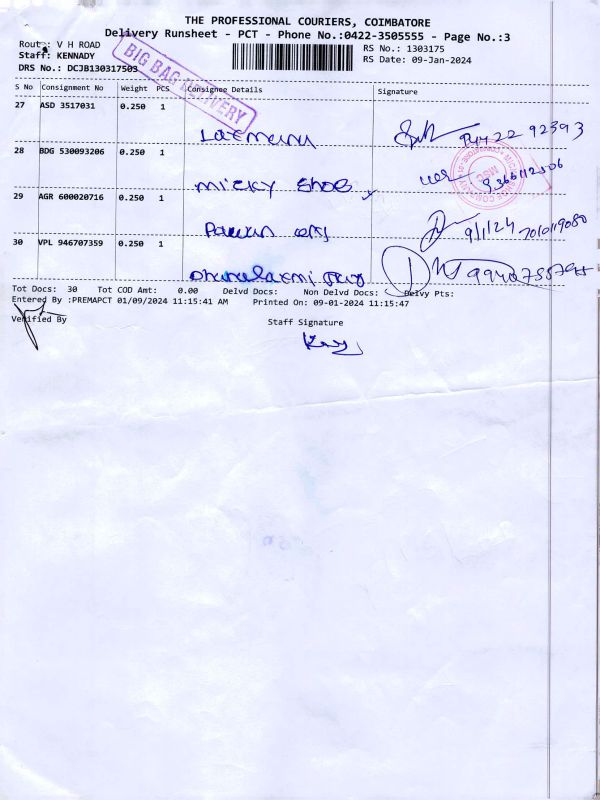 THE PROFESSIONAL COURIERS, COIMBATORE
Delivery Runsheet - PCT - Phone No.:0422-3505555 - Page No.:3
Route: V H ROAD
RS No.: 1303175
Staff: KENNADY
RS Date: 09-Jan-2024
DRS No.: DCJB130317503
BIG BAG DELIVERY
S No Consignment No Weight PCS Consignee Details Signature
27 ASD 3517031 0.250 1
28 BDG 530093206 0.250 1
micky shoe
29 AGR 600020716 0.250 1
9/1/24
30 VPL 946707359 0.250 1
Tot Docs: 30 Tot COD Amt: 0.00 Delvd Docs: Non Delvd Docs: Delvy Pts:
Entered By :PREMAPCT 01/09/2024 11:15:41 AM Printed On: 09-01-2024 11:15:47
Verified By
Staff Signature